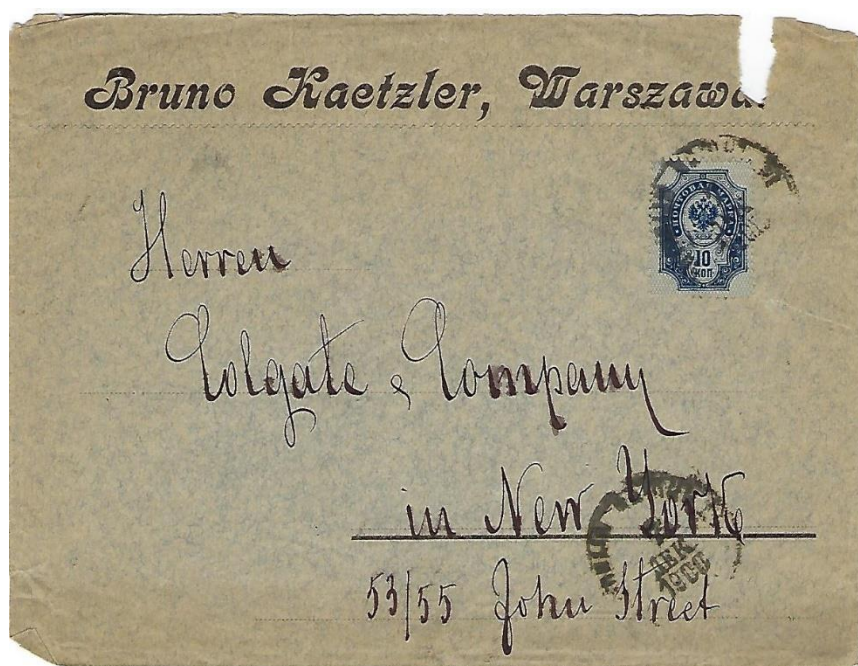 Bruno Kaetzler, Warszawa.
ПОЧТОВАЯ МАРКА
10
КОП
Herren
Colgate & Company
in New York
ДЕК
1900
53/55 John Street